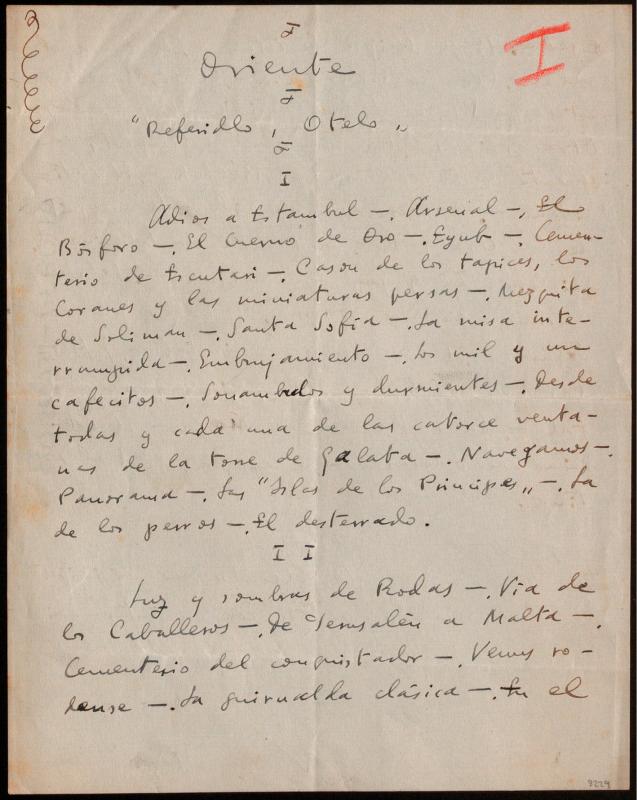 I
Oriente
"Refendllo, Otelo"
I
Adios a Estambul —. Arsenal —. El
Bósforo —. El Cuerno de Oro —. Eyub —. Cemen-
terio de Escutari —. Cason de los tapices, los
Coranes y las miniaturas persas —. Mezquita
de Soliman —. Santa Sofía —. La misa inte-
rrumpida —. Embrujamiento —. Los mil y un
cafecitos —. Sonambulos y durmientes —. Desde
todas y cada una de las catorce venta-
nas de la torre de Galata —. Navegamos —.
Panorama —. Las "Islas de los Principes" —. La
de los perros —. El desterrado.
I I
Luz y sombras de Rodas —. Via de
los Caballeros —. De Jerusalén a Malta —.
Cementerio del conquistador —. Venus ro-
dense —. La guirnalda clásica —. En el
9229